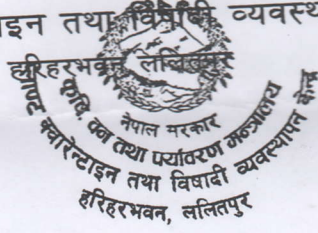 ाइन तथा विषादी व्यवस्थ
हरिहरभवन ललितपुर
नेपाल सरकार
कृषि, वन तथा पर्यावरण मन्त्रालय
प्लान्ट क्वारेन्टाइन तथा विषादी व्यवस्थापन केन्द्र
हरिहरभवन, ललितपुर